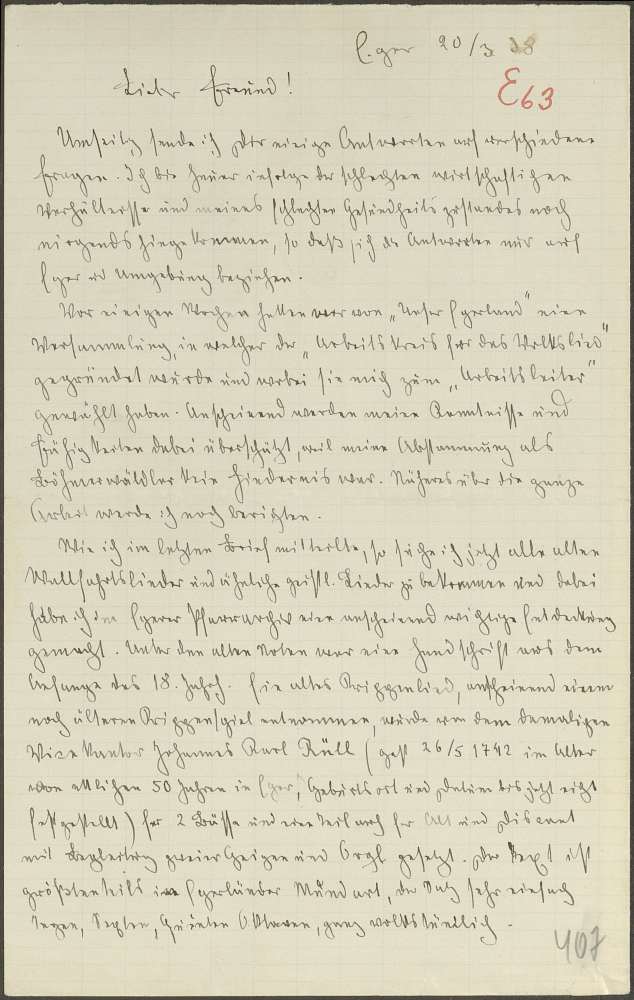 Eger 20/3 38
E63
Lieber Freund!
Umseitig sende ich Dir einige Antworten auf verschiedene
Fragen. Ich bin heuer infolge der schlechten wirtschaftlichen
Verhältnisse und meines schlechten Gesundheitszustandes noch
nirgends hingekommen, so daß sich die Antworten nur auf
Eger und Umgebung beziehen.
Vor einigen Wochen hatten wir von „Unser Egerland" eine
Versammlung, in welcher der „Arbeitskreis für das Volkslied"
gegründet wurde und wobei sie mich zum „Arbeitsleiter"
gewählt haben. Anscheinend werden meine Kenntnisse und
Fähigkeiten dabei überschätzt, weil meine Abstammung als
Böhmerwäldler kein Hindernis war. Näheres über die ganze
Arbeit werde ich noch berichten.
Wie ich im letzten Brief mitteilte, so suche ich jetzt alle alten
Wallfahrtslieder und ähnliche geistl. Lieder zu bekommen und dabei
habe ich im Egerer Pfarrarchiv eine anscheinend wichtige Entdeckung
gemacht. Unter den alten Noten war eine Handschrift aus dem
Anfange des 18. Jahrh. Ein altes Krippenlied, anscheinend einem
noch älteren Krippenspiel entnommen, wurde von dem damaligen
Vizekantor Johannes Karl Rüll (gest 26/5 1742 im Alter
von etlichen 50 Jahren in Eger, Geburtsort und Datum bis jetzt nicht
festgestellt) für 2 Bässe und einen Teil auch für Alt und Discant
mit Begleitung zweier Geigen und Orgl gesetzt. Der Text ist
größtenteils in Egerländer Mundart, der Satz sehr einfach
Terzen, Sexten, Quinten Oktaven, ganz volkstümlich.
407